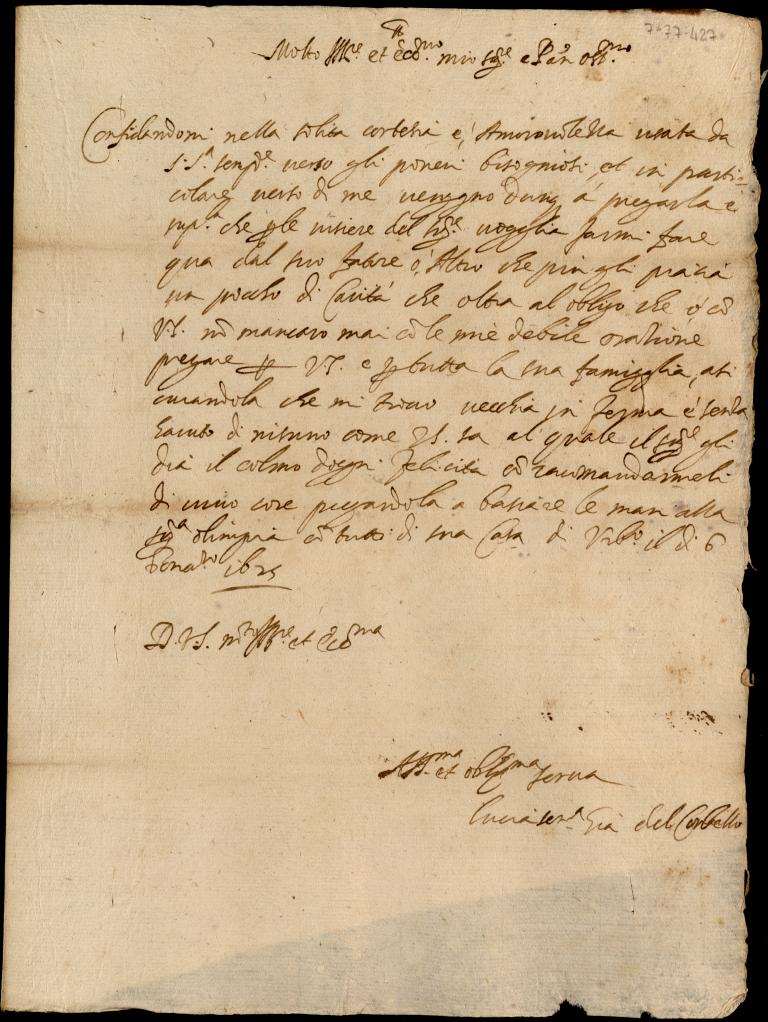 7*77-427
Molto Ill.re et ecc.mo mio sig.re e Pat. oss.mo
Confidandomi nella solita cortesia e, Amorovolezza usata da
S.S.a semp.e verso gli poveri bisogniosi, et in parti=
colare verso di me vengno dunq a pregarla e
sup.a che p le visiere del sig.e vogglia farmi fare
qua dal suo fatore o, Altro che piu gli piacia
un pocho di Carita che oltra al obligo che o, co
V.S. no mancaro mai co le mie debile oratione
pregare p V.S. e p tutta la sua famigglia, asi
curandola che mi trovo vecchia in ferma e senza
haiuto di nisuno come V.S. sa al quale il sig.e gli
dia il colmo dogni felicita co racomandarmeli
di vivo core preggandola a basiare le man alla
sig.a olimpia co tutti di sua Casa di Urb.o il di 6
Fena.ro 1625
D.V.S. m.to Ill.re et Ecc.ma
Aff.ma et oblig.ma serva
Lucia del Corbello